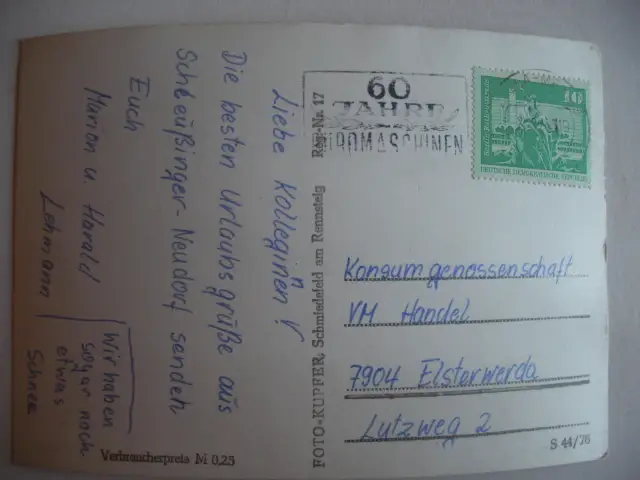 Liebe Kolleginnen!
Die besten Urlaubsgrüße aus
Schleußinger-Neudorf senden
Euch
Marion u. Harald
Lehmann
Wir haben
sogar noch
etwas
Schnee
Verbraucherpreis M 0,25
FOTO-KUPFER, Schmiedefeld am Rennsteig Reg-Nr. 17
60
JAHRE
BÜROMASCHINEN
10
DEUTSCHE DEMOKRATISCHE REPUBLIK
Konsumgenossenschaft
VM Handel
7904 Elsterwerda
Lutzweg 2
S 44/76